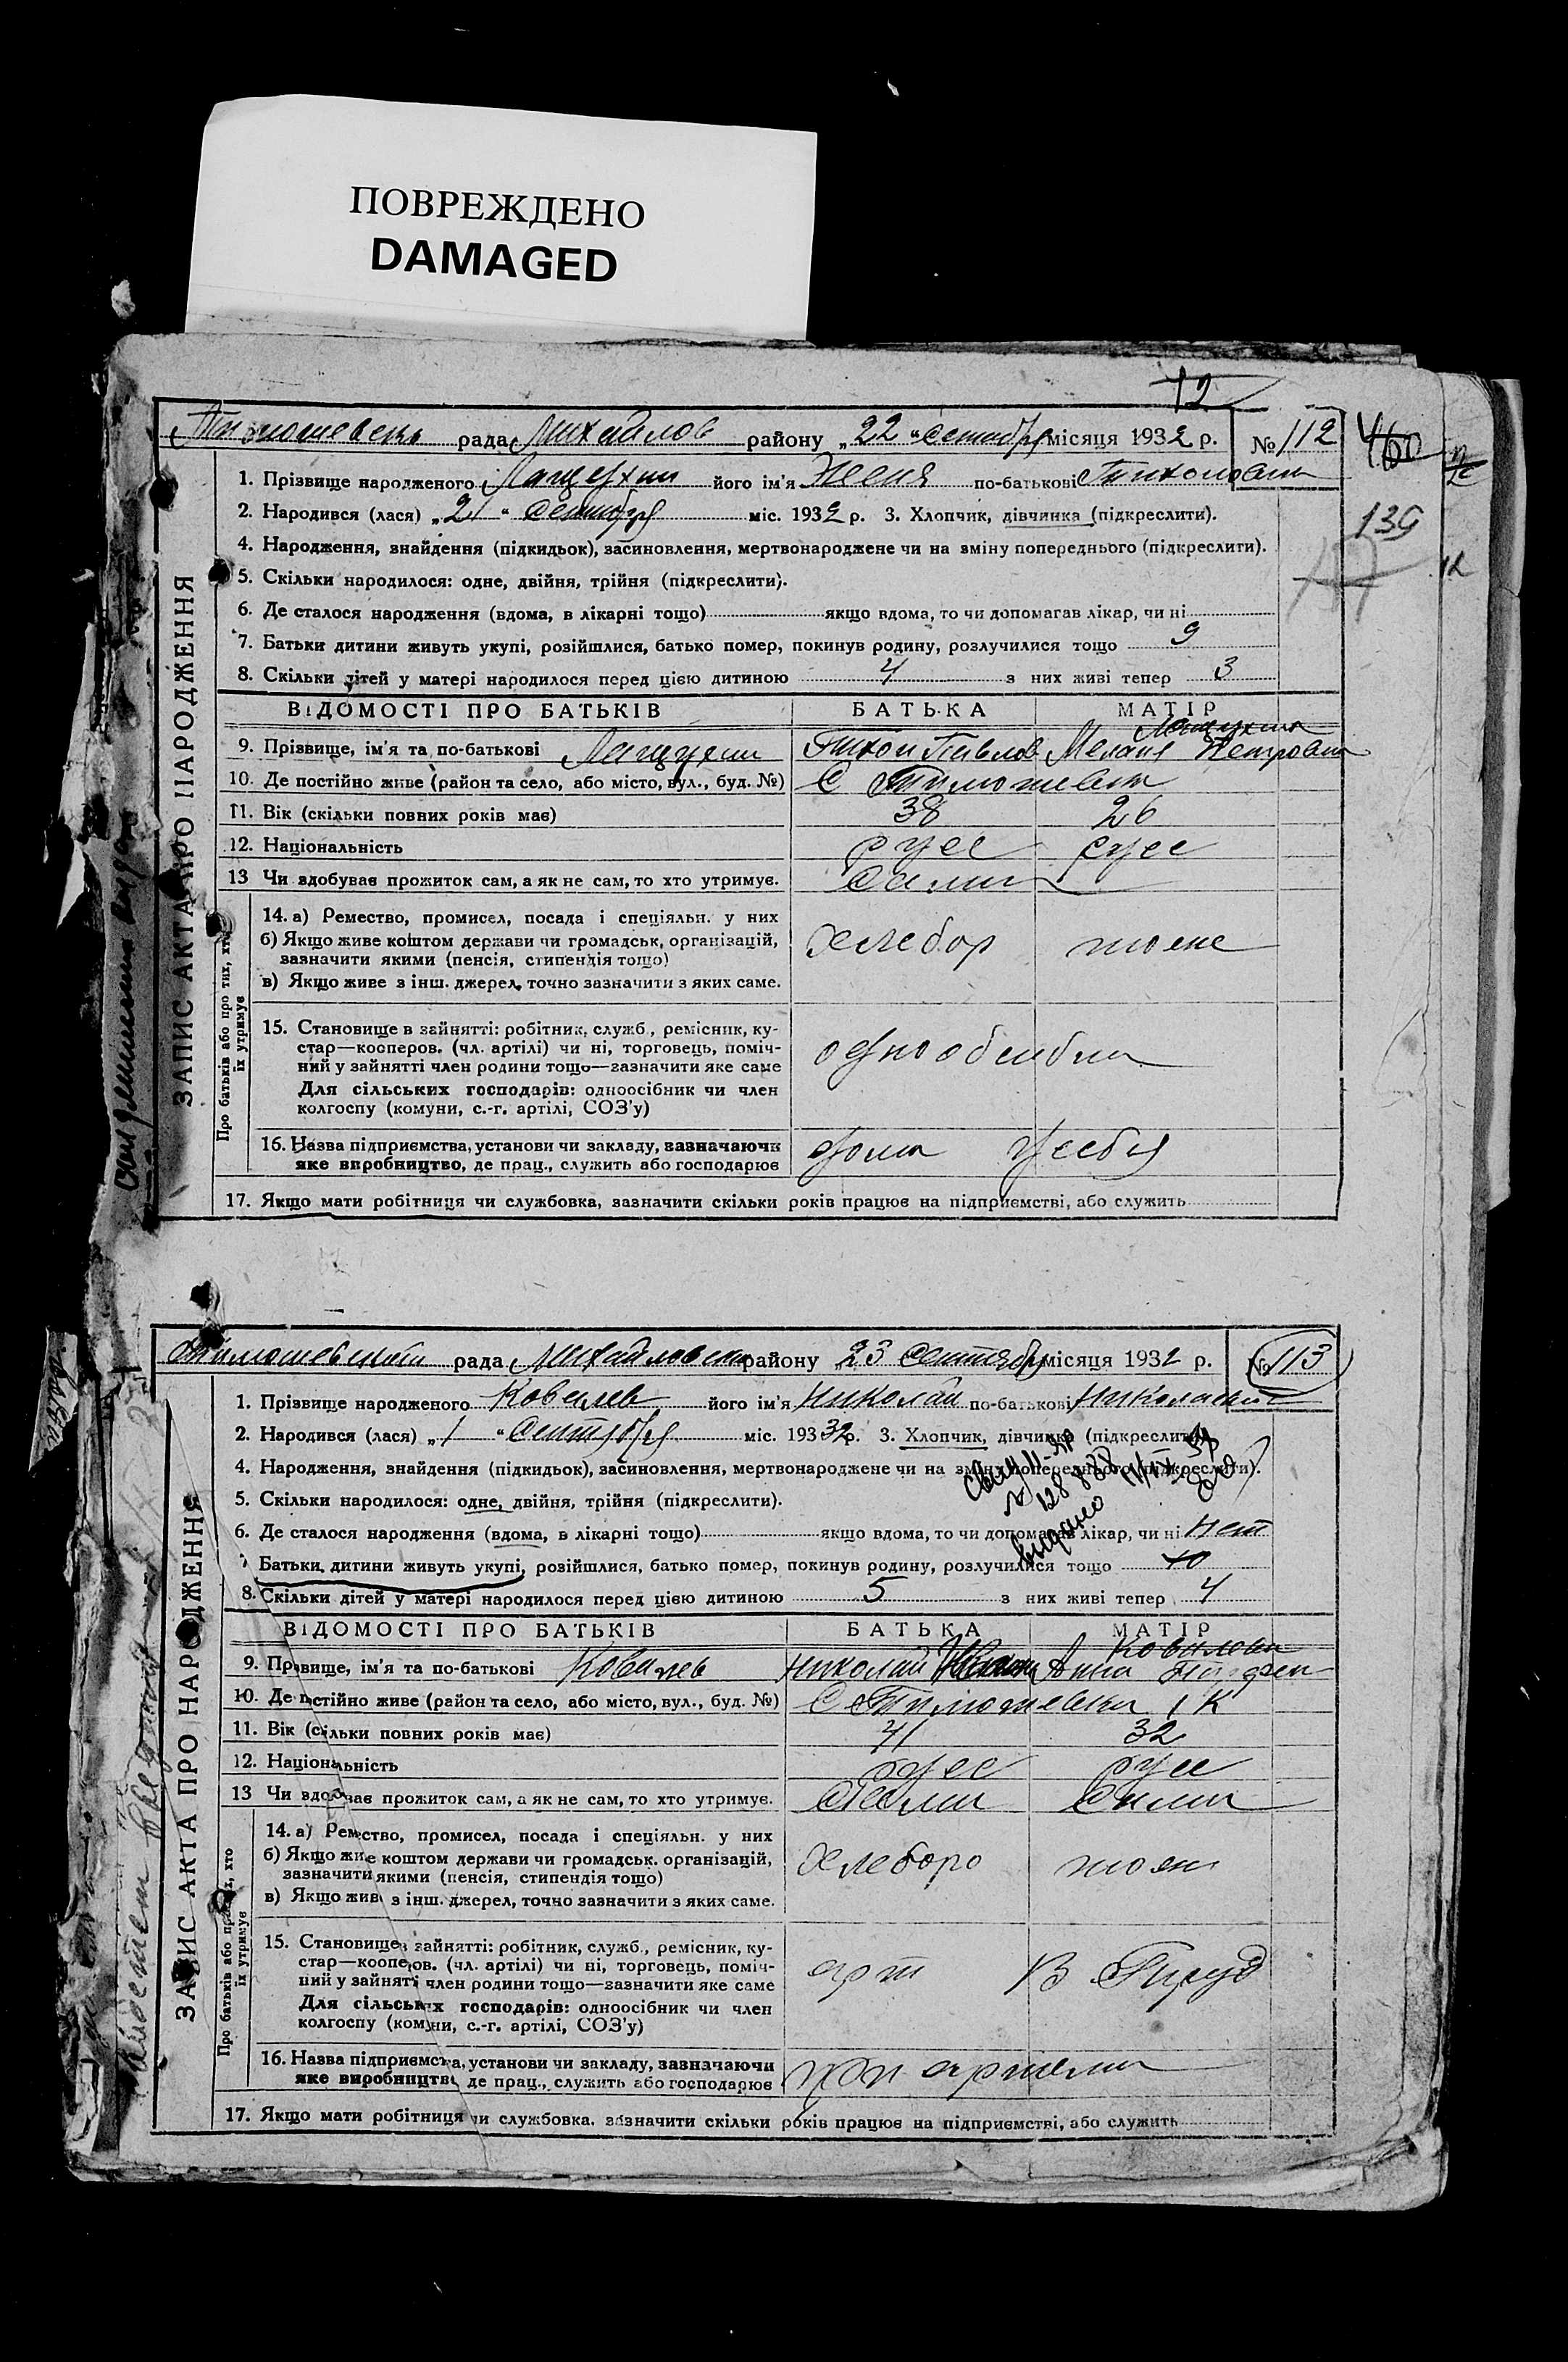 ПОВРЕЖДЕНО
DAMAGED
12
рада Михайлов району „22“ Сентября місяця 1932 р. № 112
1. Прізвище народженого його ім'я Женя по-батькові Тихоновна
2. Народився (лася) „21“ Сентября міс. 1932 р. 3. Хлопчик, дівчинка (підкреслити).
4. Народження, знайдення (підкидьок), засиновлення, мертвонароджене чи на зміну попереднього (підкреслити).
5. Скільки народилося: одне, двійня, трійня (підкреслити).
6. Де сталося народження (вдома, в лікарні тощо) якщо вдома, то чи допомагав лікар, чи ні
7. Батьки дитини живуть укупі, розійшлися, батько помер, покинув родину, розлучилися тощо 9
8. Скільки дітей у матері народилося перед цією дитиною 4 з них живі тепер 3
139
12
ЗАПИС АКТА ПРО НАРОДЖЕННЯ
ВІДОМОСТІ ПРО БАТЬКІВ БАТЬКА МАТІР
9. Прізвище, ім'я та по-батькові Тихон Павлов Мелания Петровна
10. Де постійно живе (район та село, або місто, вул., буд. №) С
11. Вік (скільки повних років має) 38 26
12. Національність русс русс
13 Чи здобуває прожиток сам, а як не сам, то хто утримує. Сами
Про батьків або про тих, хто
їх утримує
14. а) Ремество, промисел, посада і спеціяльн. у них
б) Якщо живе коштом держави чи громадськ. організацій,
зазначити якими (пенсія, стипендія тощо)
в) Якщо живе з інш. джерел, точно зазначити з яких саме.
Хлебор тоже
15. Становище в зайнятті: робітник, служб., ремісник, ку-
стар—кооперов. (чл. артілі) чи ні, торговець, поміч-
ний у зайнятті член родини тощо—зазначити яке саме
Для сільських господарів: одноосібник чи член
колгоспу (комуни, с.-г. артілі, СОЗ'у)
16. Назва підприємства, установи чи закладу, зазначаючи
яке виробництво, де прац., служить або господарює
дома у себя
17. Якщо мати робітниця чи службовка, зазначити скільки років працює на підприємстві, або служить
рада району „23 Сентября місяця 1932 р. № 113
1. Прізвище народженого Ковалев його ім'я Николай по-батькові
2. Народився (лася) „1“ Сентября міс. 1932 р. 3. Хлопчик, дівчинка (підкреслити).
4. Народження, знайдення (підкидьок), засиновлення, мертвонароджене чи на зміну попереднього (підкреслити).
5. Скільки народилося: одне, двійня, трійня (підкреслити).
6. Де сталося народження (вдома, в лікарні тощо) якщо вдома, то чи допомагав лікар, чи ні нет
7 Батьки дитини живуть укупі, розійшлися, батько помер, покинув родину, розлучилися тощо 10
8. Скільки дітей у матері народилося перед цією дитиною 5 з них живі тепер 4
выдано
ЗАПИС АКТА ПРО НАРОДЖЕННЯ
ВІДОМОСТІ ПРО БАТЬКІВ БАТЬКА МАТІР
Ковалева
9. Прізвище, ім'я та по-батькові Ковалев Николай Анна
10. Де постійно живе (район та село, або місто, вул., буд. №) С 1 К
11. Вік (скільки повних років має) 41 32
12. Національність русс русс
13 Чи здобуває прожиток сам, а як не сам, то хто утримує. Сами Сами
Про батьків або про тих, хто
їх утримує
14. а) Ремество, промисел, посада і спеціяльн. у них
б) Якщо живе коштом держави чи громадськ. організацій,
зазначити якими (пенсія, стипендія тощо)
в) Якщо живе з інш. джерел, точно зазначити з яких саме.
Хлеборо тоже
15. Становище в зайнятті: робітник, служб., ремісник, ку-
стар—кооперов. (чл. артілі) чи ні, торговець, поміч-
ний у зайнятті член родини тощо—зазначити яке саме
Для сільських господарів: одноосібник чи член
колгоспу (комуни, с.-г. артілі, СОЗ'у)
арт В Труд
16. Назва підприємства, установи чи закладу, зазначаючи
яке виробництво, де прац., служить або господарює
при артели
17. Якщо мати робітниця чи службовка. зазначити скільки років працює на підприємстві, або служить